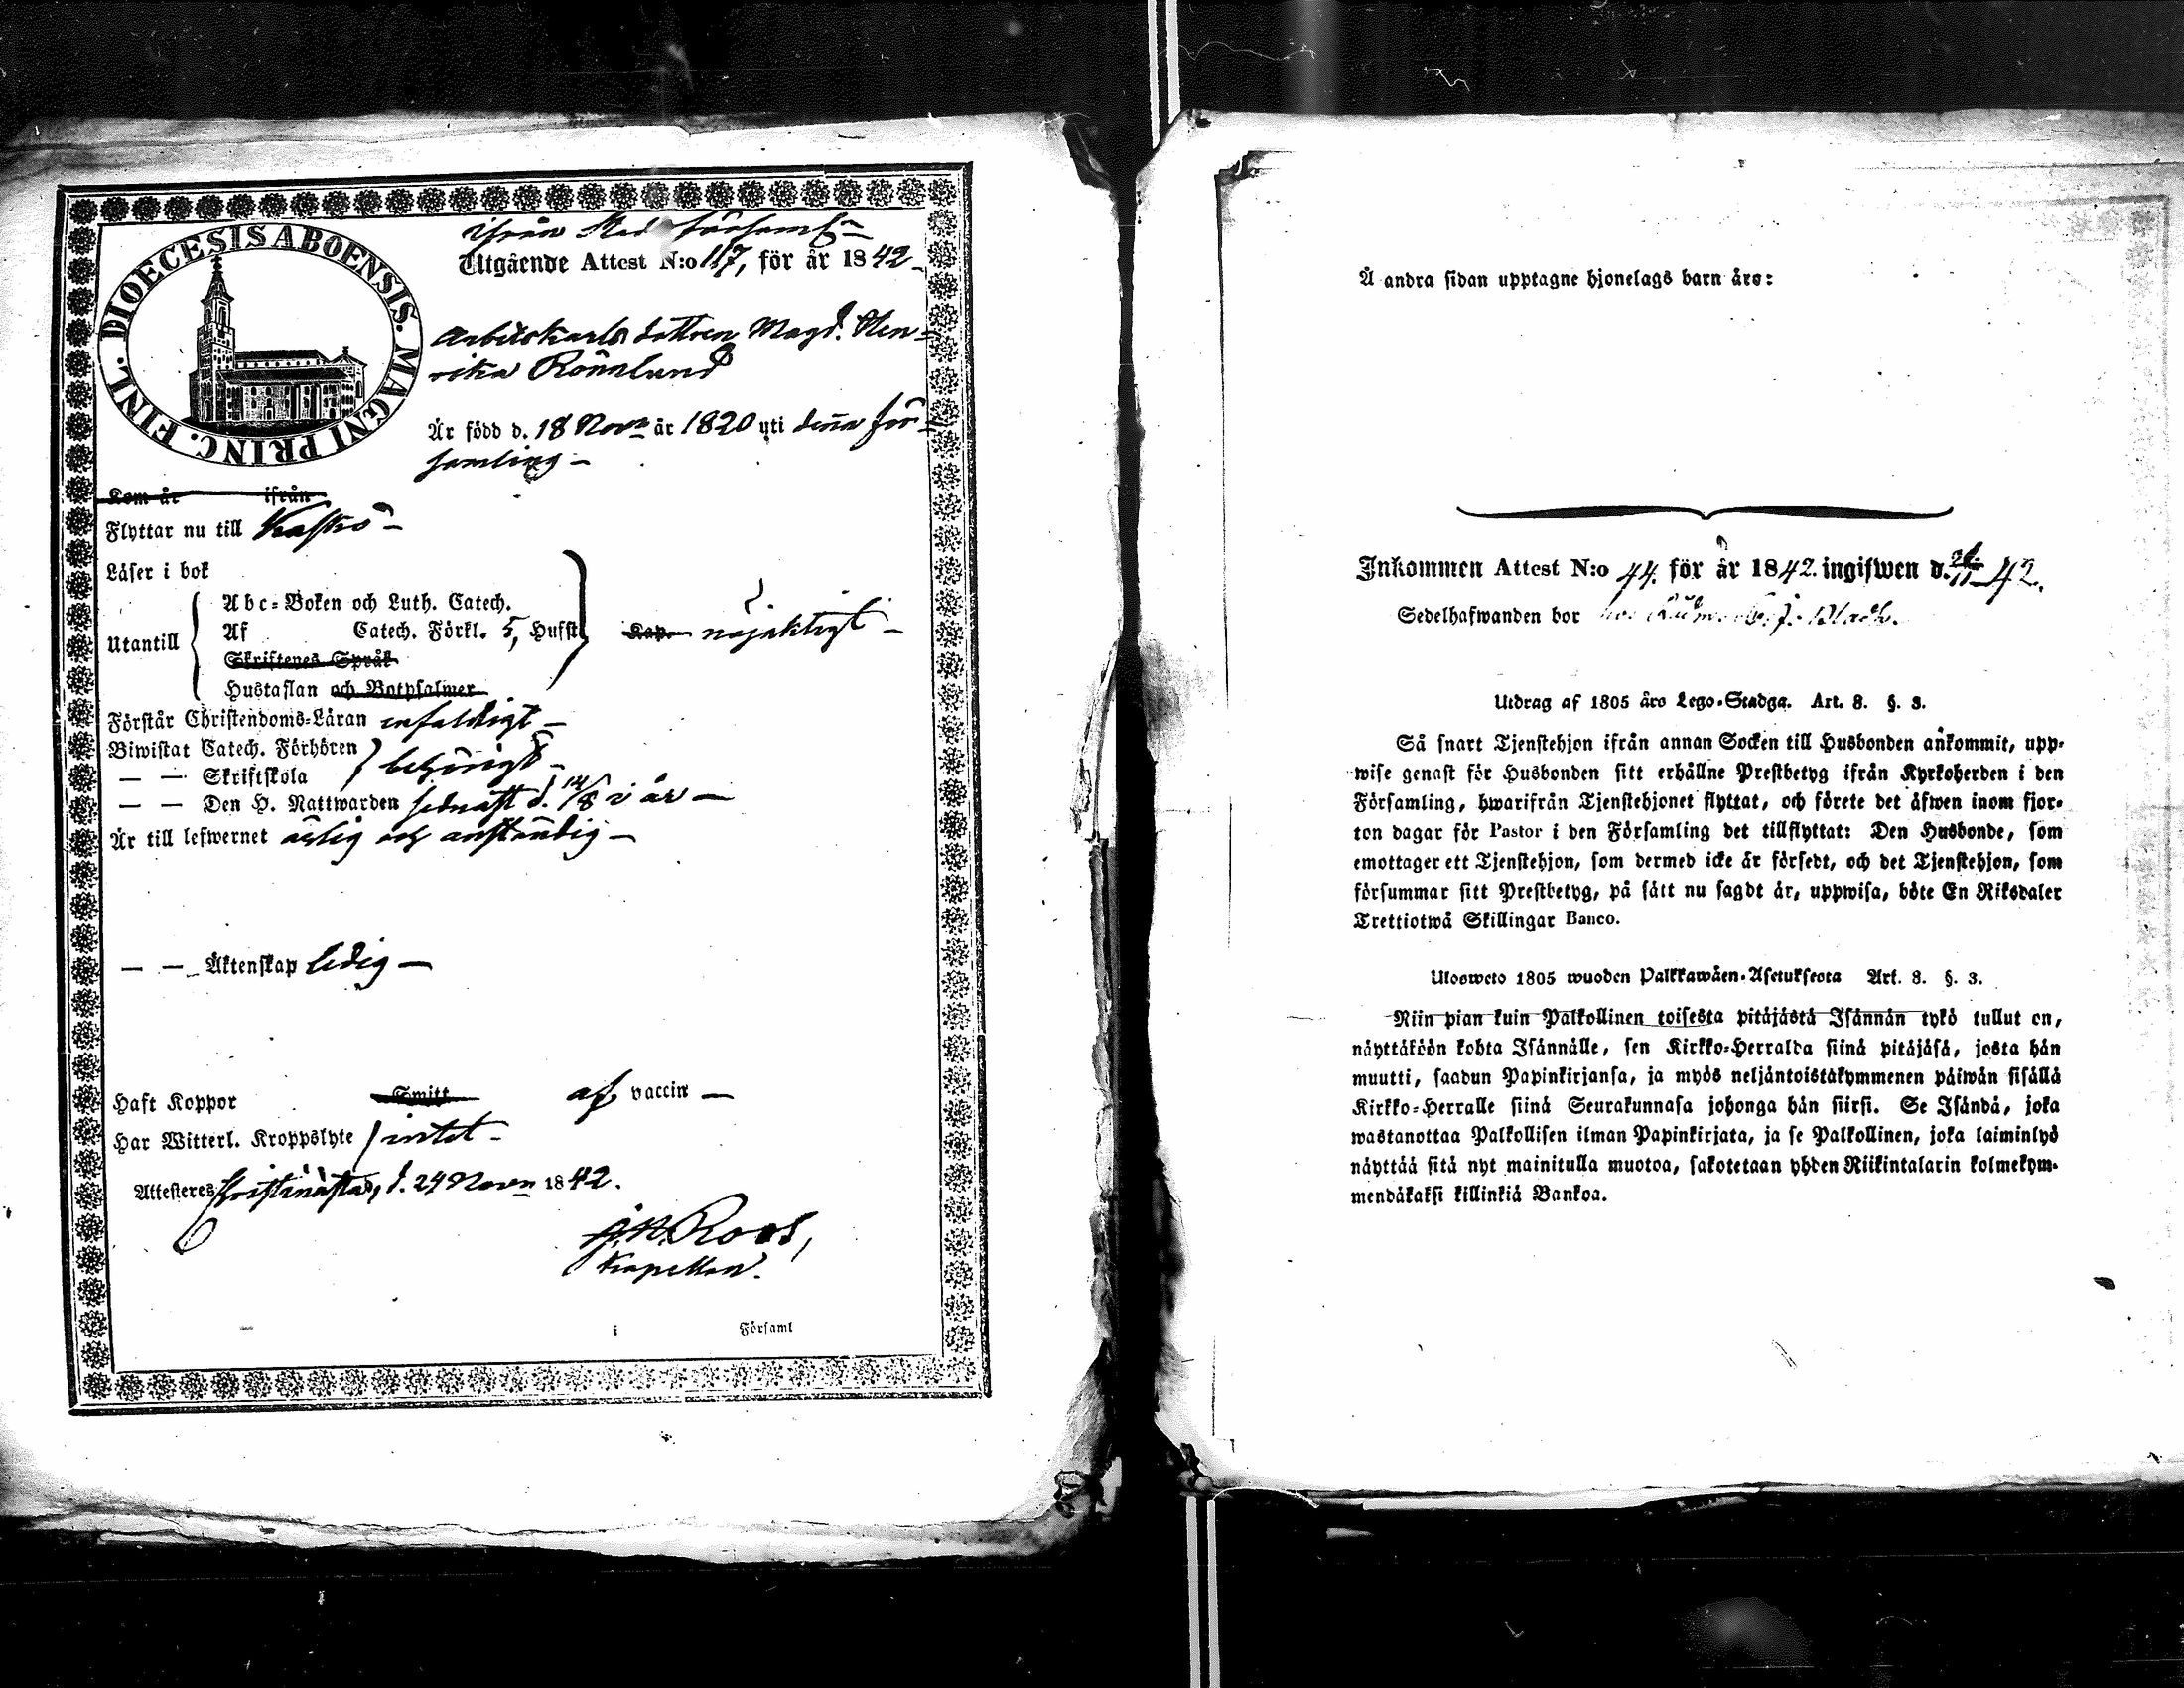 DIOECESIS ABOENSIS. MAGNI PRINC. FINL.
ifrån Stads församl:n
Utgående Attest N:o 117, för år 1842
Arbetskarls dottren Magd. Hen-
rika Rönnlund
Är född d. 18 Nov:r år 1820 uti denna för-
samling –
Kom år ifrån
Flyttar nu till Kaskö –
Läser i bok
Utantill
Abc-Boken och Luth. Catech.
Af Catech. Förkl. 5, Hufst
Skriftenes Språk
Hustaflan och Botpsalmer
Kap. nöjaktigt –
Förstår Christendoms-Läran enfaldigt –
Biwistat Catech. Förhören
— — Skriftskola
behörigt –
— — Den H. Nattwarden sednast d. 14/8 i år —
Är till lefwernet ärlig och anständig –
— — Äktenskap ledig —
Haft Koppor Smitt af vaccin —
Har Witterl. Kroppslyte intet –
Attesteres Christinæstad, d. 24 Novem 1842.
Roos,
Kapellan.
i Församl
Å andra sidan upptagne hjonelags barn äro:
Inkommen Attest N:o 44. för år 1842. ingifwen d. 42.
Sedelhafwanden bor hos
Utdrag af 1805 års Lego-Stadga. Art. 8. §. 3.
Så snart Tjenstehjon ifrån annan Socken till Husbonden ankommit, upp-
wise genast för Husbonden sitt erhållne Prestbetyg ifrån Kyrkoherden i den
Församling, hwarifrån Tjenstehjonet flyttat, och förete det äfwen inom fjor-
ton dagar för Pastor i den Församling det tillflyttat: Den Husbonde, som
emottager ett Tjenstehjon, som dermed icke är försedt, och det Tjenstehjon, som
försummar sitt Prestbetyg, på sätt nu sagdt är, uppwisa, böte En Riksdaler
Trettiotwå Skillingar Banco.
Ulosweto 1805 wuoden Palkkawäen-Asetuksesta Art. 8. §. 3.
Niin pian kuin Palkollinen toisesta pitäjästä Isännän tykö tullut on,
näyttäköön kohta Isännälle, sen Kirkko-Herralda siinä pitäjäsä, josta hän
muutti, saadun Papinkirjansa, ja myös neljäntoistakymmenen päiwän sisällä
Kirkko-Herralle siinä Seurakunnasa johonga hän siirsi. Se Isändä, joka
wastanottaa Palkollisen ilman Papinkirjata, ja se Palkollinen, joka laiminlyö
näyttää sitä nyt mainitulla muotoa, sakotetaan yhden Riikintalarin kolmekym-
mendäkaksi killinkiä Bankoa.